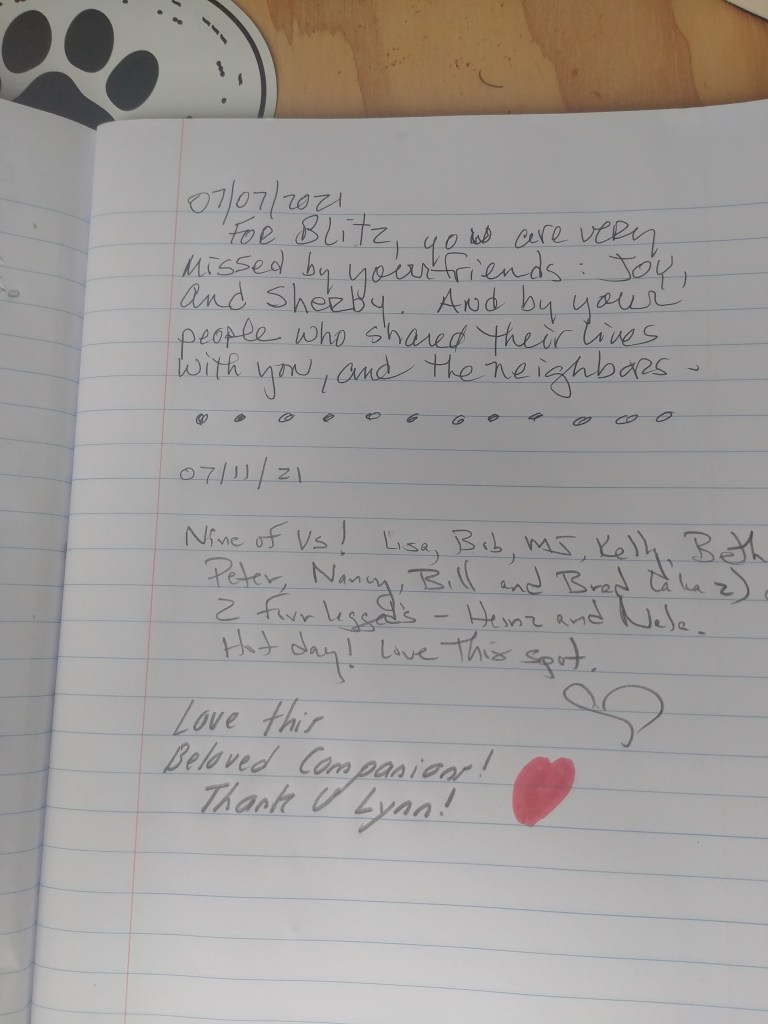 07/07/2021
For Blitz, you are very
missed by your friends: Joy,
and Sheeby. And by your
people who shared their lives
with you, and the neighbors -
07/11/21
Nine of Us! Lisa, Bob, MJ, Kelly, Beth
Peter, Nancy, Bill and Brad (aka 2)
2 four legged's - Heinz and Nele.
Hot day! Love this spot.
Love this
Beloved Companions!
Thank U Lynn!